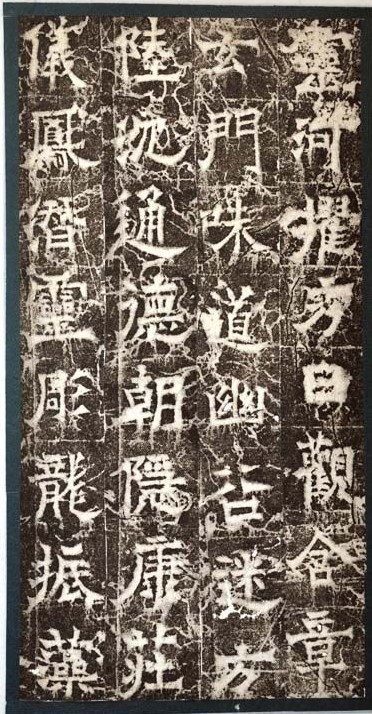 河擢方日觀含章
玄門昧道幽谷迷方
陸沈通德朝隱康莊
儀鳳潛靈彫龍振藻